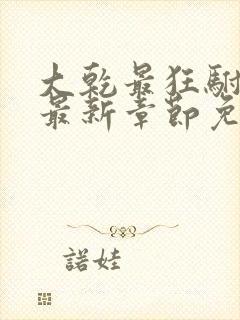 大乾最狂駙
最新章節免
諾娃